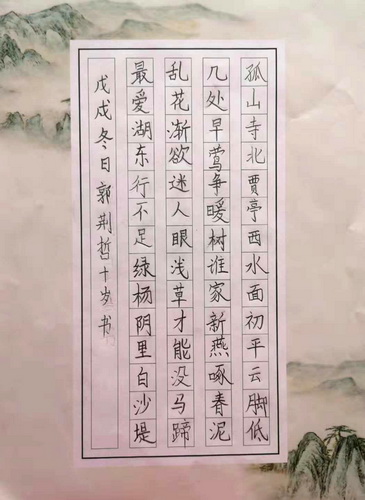 孤山寺北贾亭西水面初平云脚低
几处早莺争暖树谁家新燕啄春泥
乱花渐欲迷人眼浅草才能没马蹄
最爱湖东行不足绿杨阴里白沙堤
戊戌冬日郭荆哲十岁书